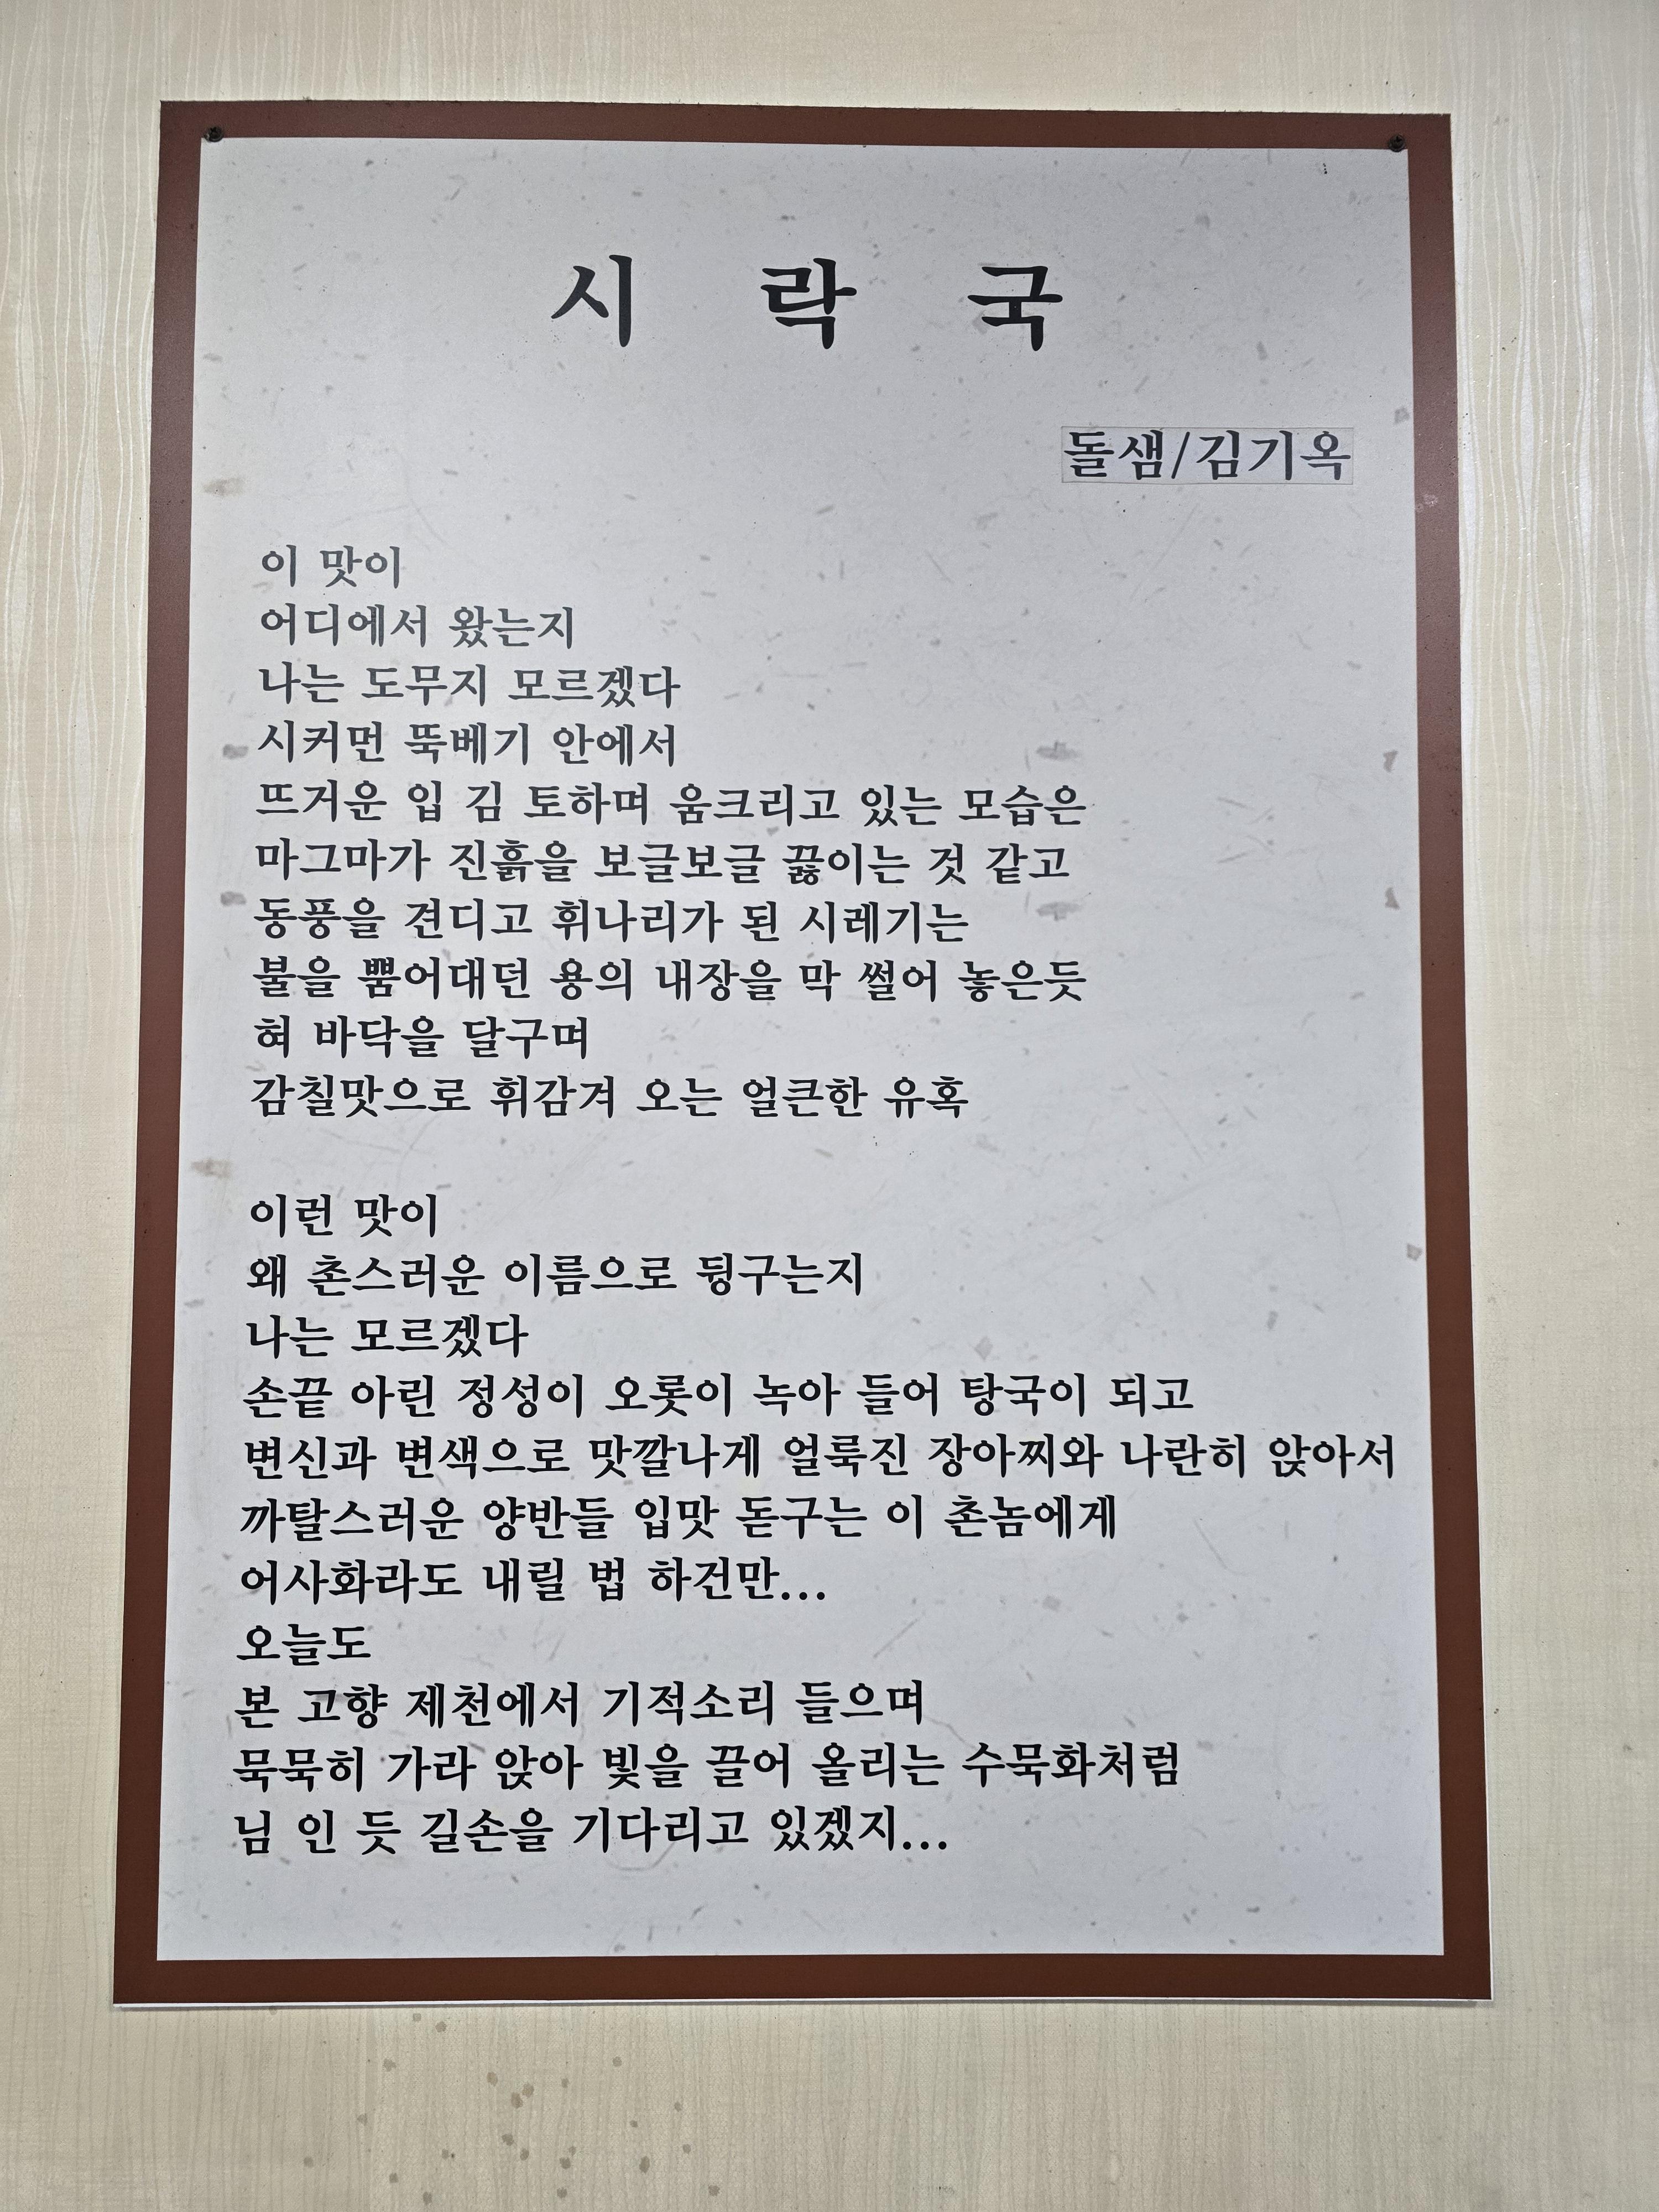 시 락 국
돌샘/김기옥
이 맛이
어디에서 왔는지
나는 도무지 모르겠다
시커먼 뚝베기 안에서
뜨거운 입 김 토하며 움크리고 있는 모습은
마그마가 진흙을 보글보글 끓이는 것 같고
동풍을 견디고 휘나리가 된 시레기는
불을 뿜어대던 용의 내장을 막 썰어 놓은듯
혀 바닥을 달구며
감칠맛으로 휘감겨 오는 얼큰한 유혹
이런 맛이
왜 촌스러운 이름으로 뒹구는지
나는 모르겠다
손끝 아린 정성이 오롯이 녹아 들어 탕국이 되고
변신과 변색으로 맛깔나게 얼룩진 장아찌와 나란히 앉아서
까탈스러운 양반들 입맛 돋구는 이 촌놈에게
어사화라도 내릴 법 하건만...
오늘도
본 고향 제천에서 기적소리 들으며
묵묵히 가라 앉아 빛을 끌어 올리는 수묵화처럼
님 인 듯 길손을 기다리고 있겠지...